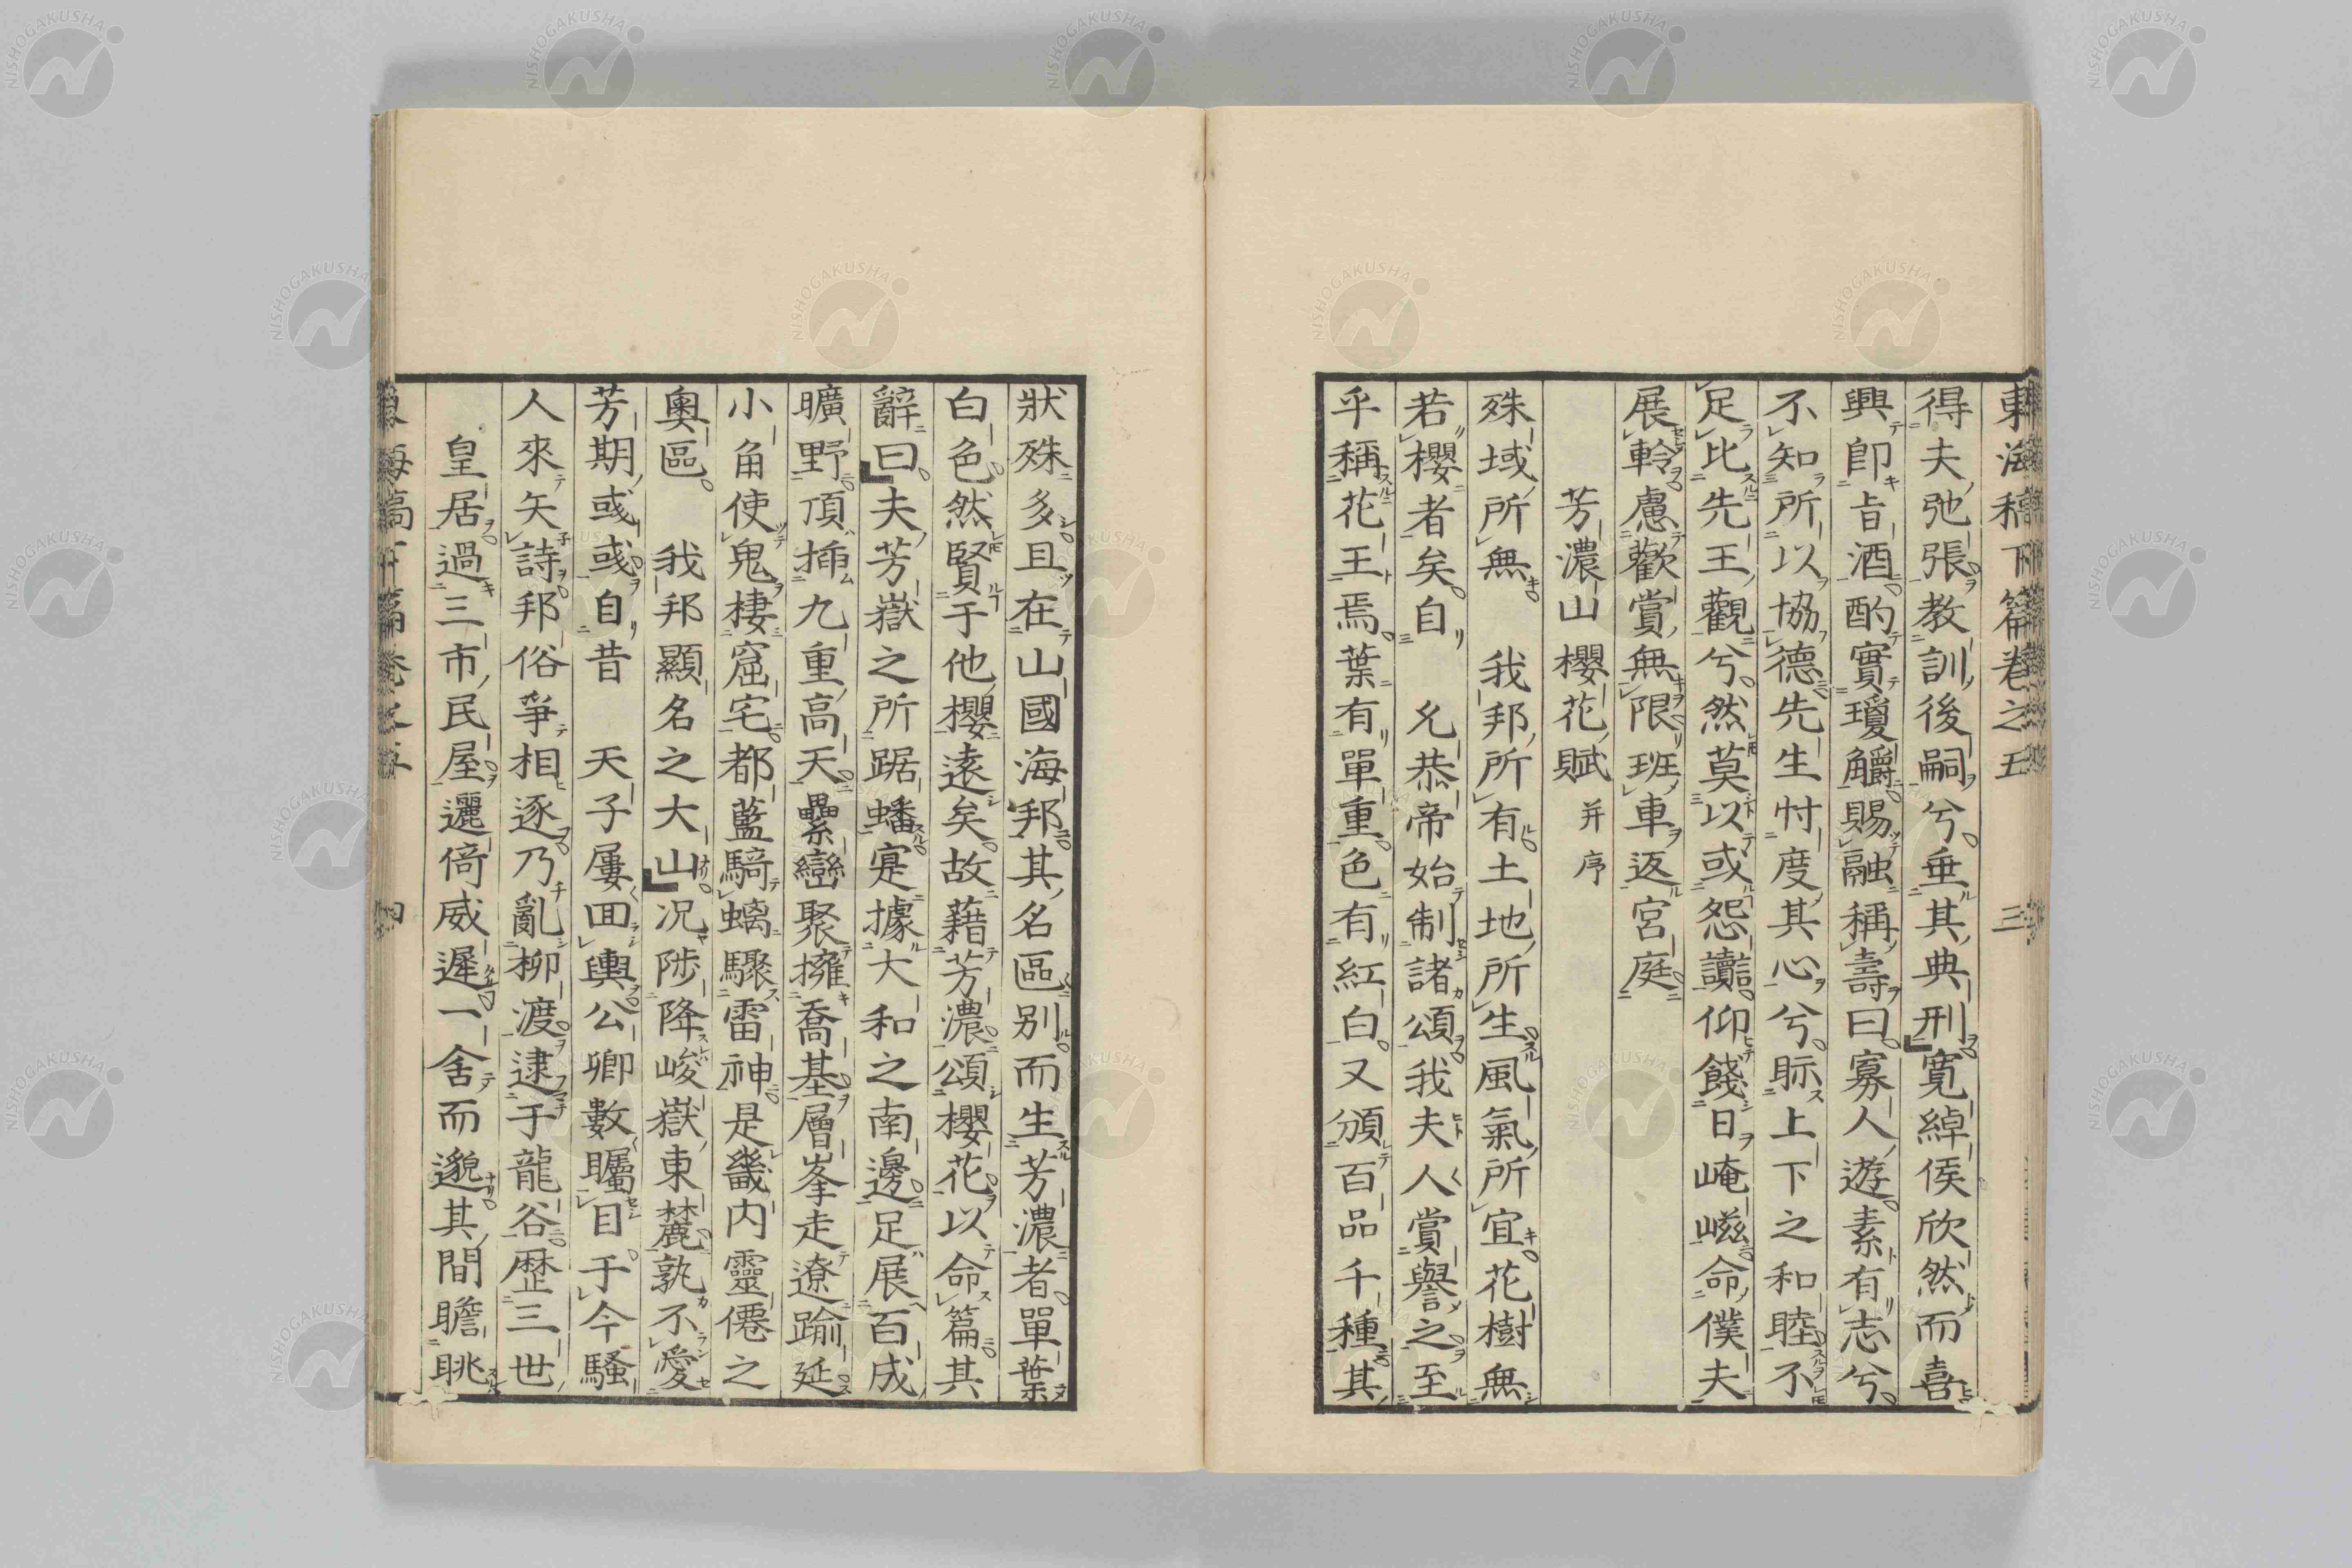 東海稿下篇卷之五 三
得夫弛張教訓後嗣兮垂其典刑寬綽侯欣然而喜
興卽旨酒酌實瓊觴賜融稱壽曰寡人遊素有志兮
不知所以協德先生忖度其心兮眎上下之和睦不
足比先王觀兮然莫以或怨讟仰餞日崦嵫命僕夫
展軨慮歡賞無限班車返宮庭
芳濃山櫻花賦并序
殊域所無 我邦所有土地所生風氣所宜花樹無
若櫻者矣自 允恭帝始制諸頌我夫人賞譽之至
乎稱花王焉葉有單重色有紅白又頒百品千種其
狀殊多且在山國海邦其名區別而生芳濃者單葉
白色然賢于他櫻遠矣故藉芳濃頌櫻花以命篇其
辭曰夫芳嶽之所踞蟠寔據大和之南邊足展百成
曠野頂揷九重高天纍巒聚擁喬基層峯走遼踰延
小角使鬼棲窟宅都藍騎螭驟雷神是畿內靈僊之
奧區 我邦顯名之大山況陟降峻嶽東麓孰不愛
芳期或或自昔 天子屢囬輿公卿數矚目于今騷
人來矢詩邦俗爭相逐乃亂柳渡逮于龍谷歷三世
皇居過三市民屋邐倚威遲一舍而邈其間瞻眺
NISHOGAKUSHA